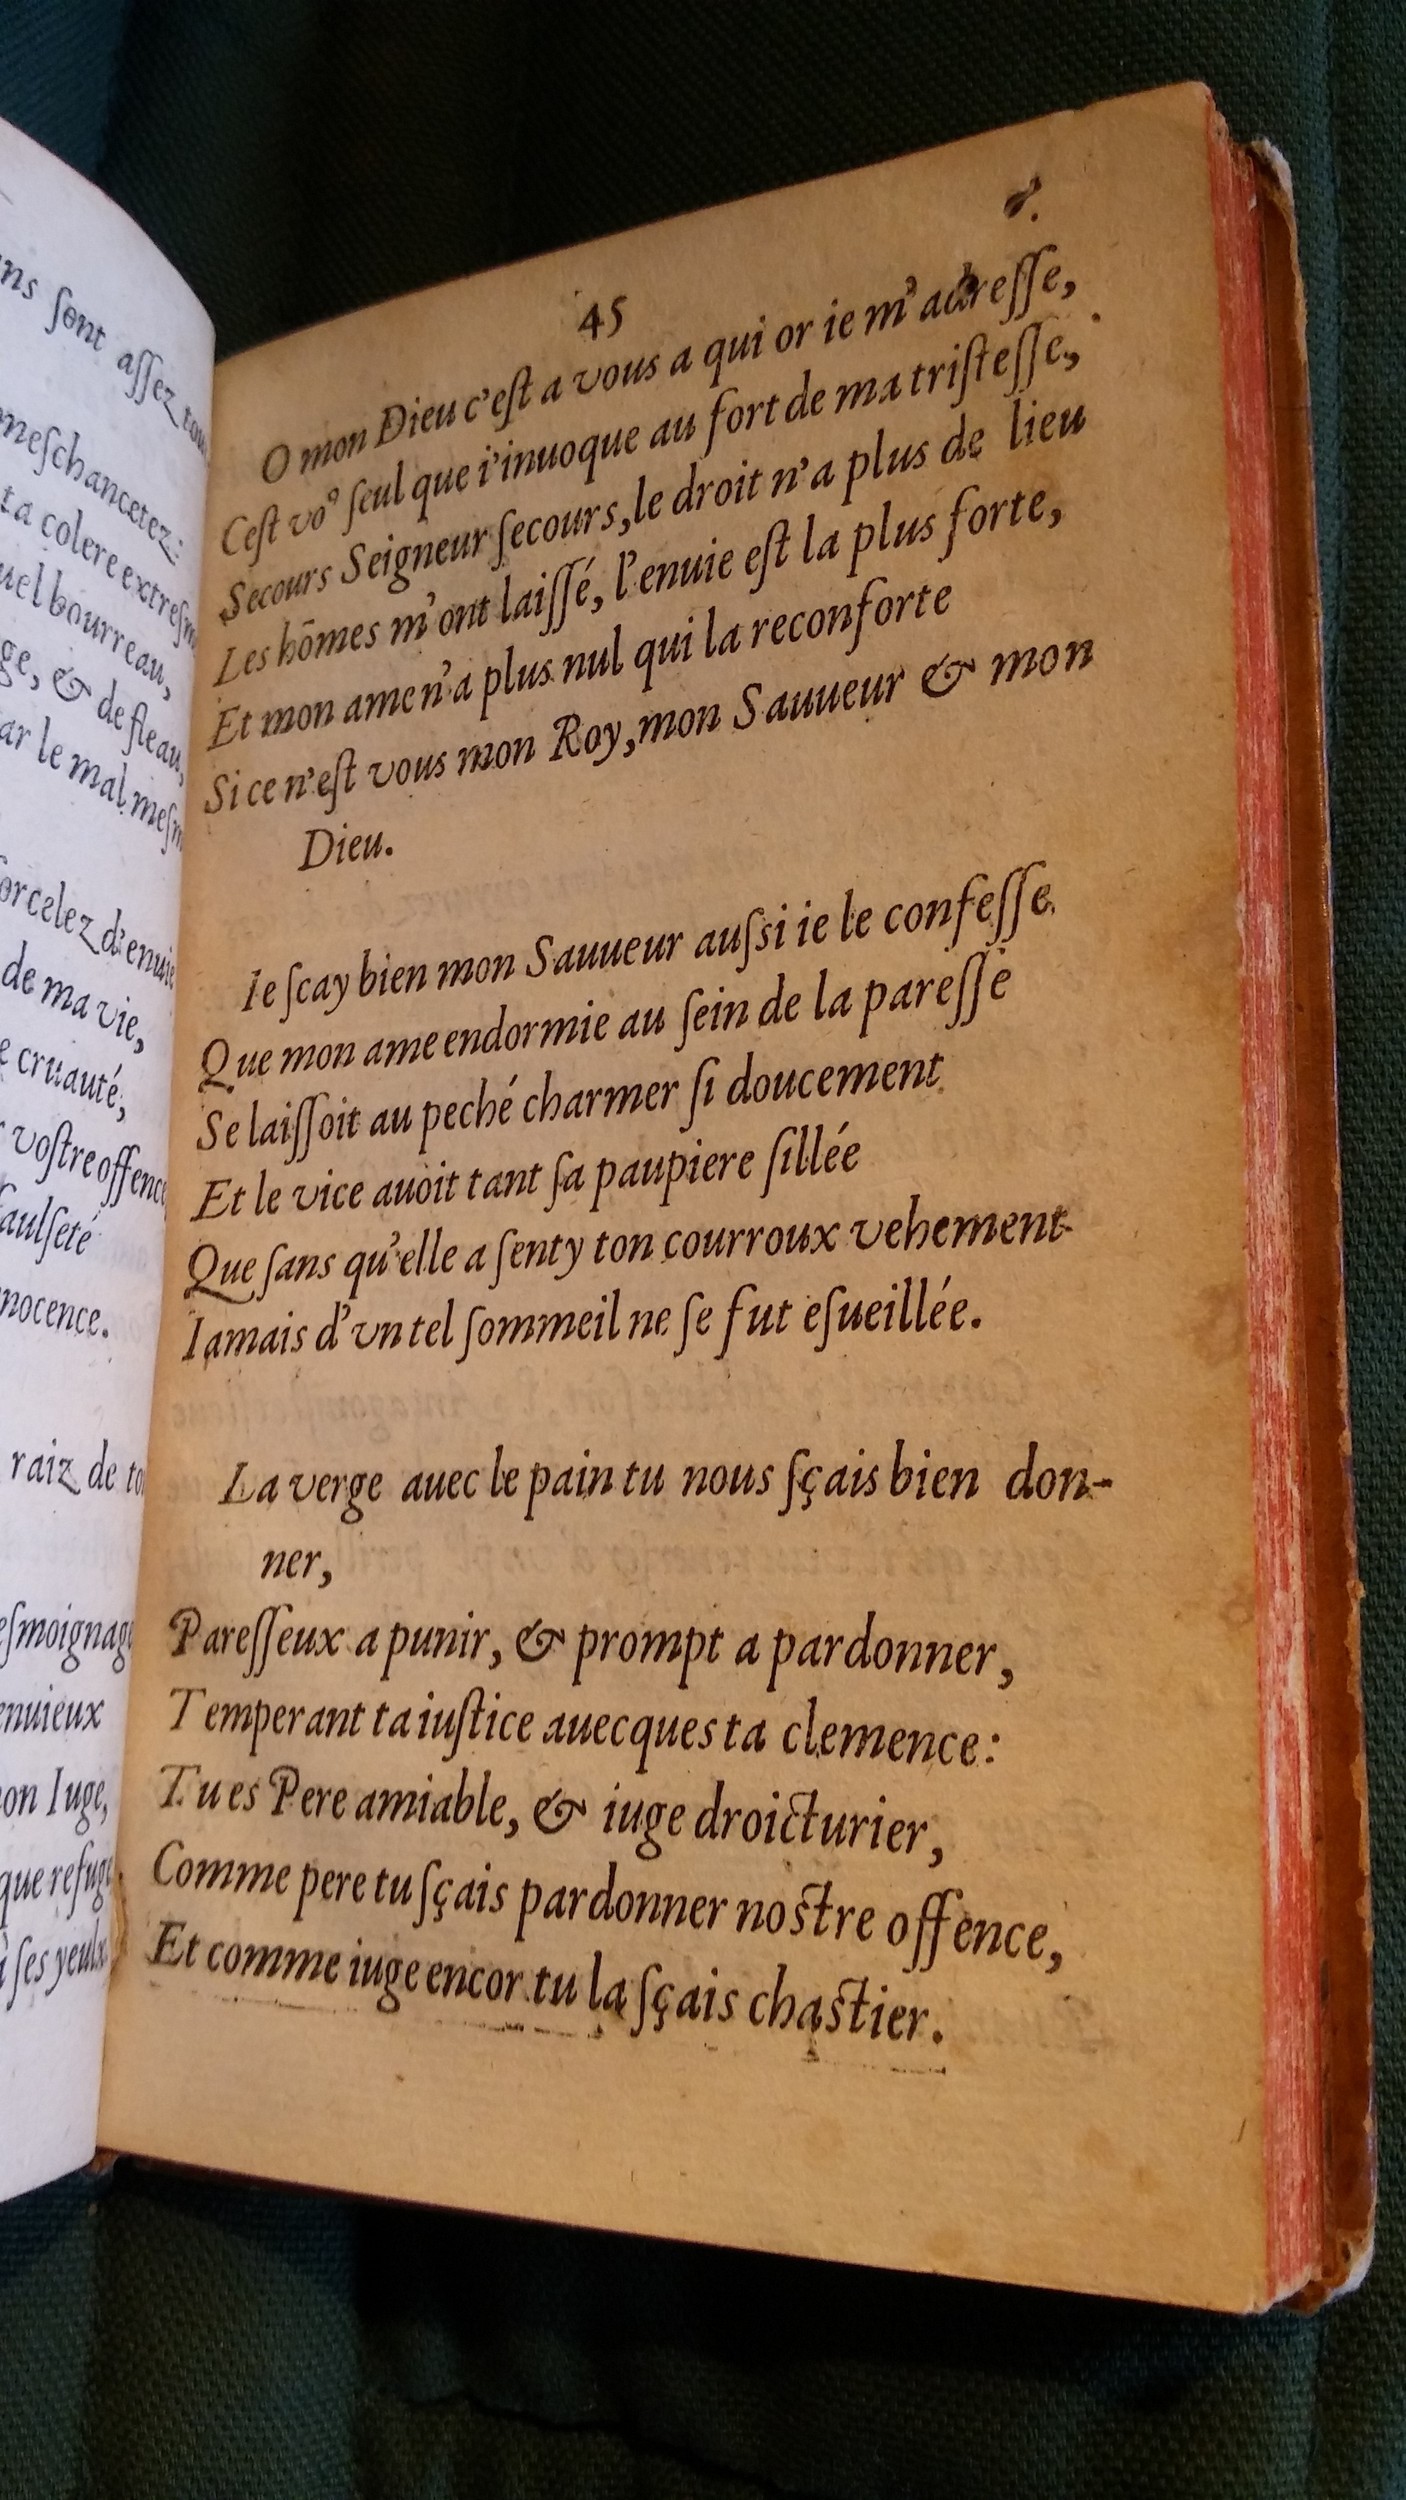 ſont aſſez
meſchancetez:
ta colere
bourreau,
& de fleau,
le mal
d'enuie
de ma vie,
cruauté,
voſtre
raiz de
enuieux
Iuge,
que
ſes yeulx
45
O mon Dieu c'eſt a vous a qui or ie m'adreſſe,
Ceſt voꝰ ſeul que i'inuoque au fort de ma triſteſſe,
Secours Seigneur ſecours, le droit n'a plus de lieu
Les hōmes m'ont laiſſé, l'enuie eſt la plus forte,
Et mon ame n'a plus nul qui la reconforte
Si ce n'eſt vous mon Roy, mon Sauueur & mon
Dieu.
Ie ſcay bien mon Sauueur auſsi ie le confeſſe
Que mon ame endormie au ſein de la pareſſe
Se laiſſoit au peché charmer ſi doucement
Et le vice auoit tant ſa paupiere ſillée
Que ſans qu'elle a ſenty ton courroux vehement
Iamais d'vn tel ſommeil ne ſe fut eſueillée.
La verge auec le pain tu nous ſçais bien don-
ner,
Pareſſeux a punir, & prompt a pardonner,
Temperant ta iuſtice auecques ta clemence:
Tu es Pere amiable, & iuge droicturier,
Comme pere tu ſçais pardonner noſtre offence,
Et comme iuge encor tu la ſçais chaſtier.